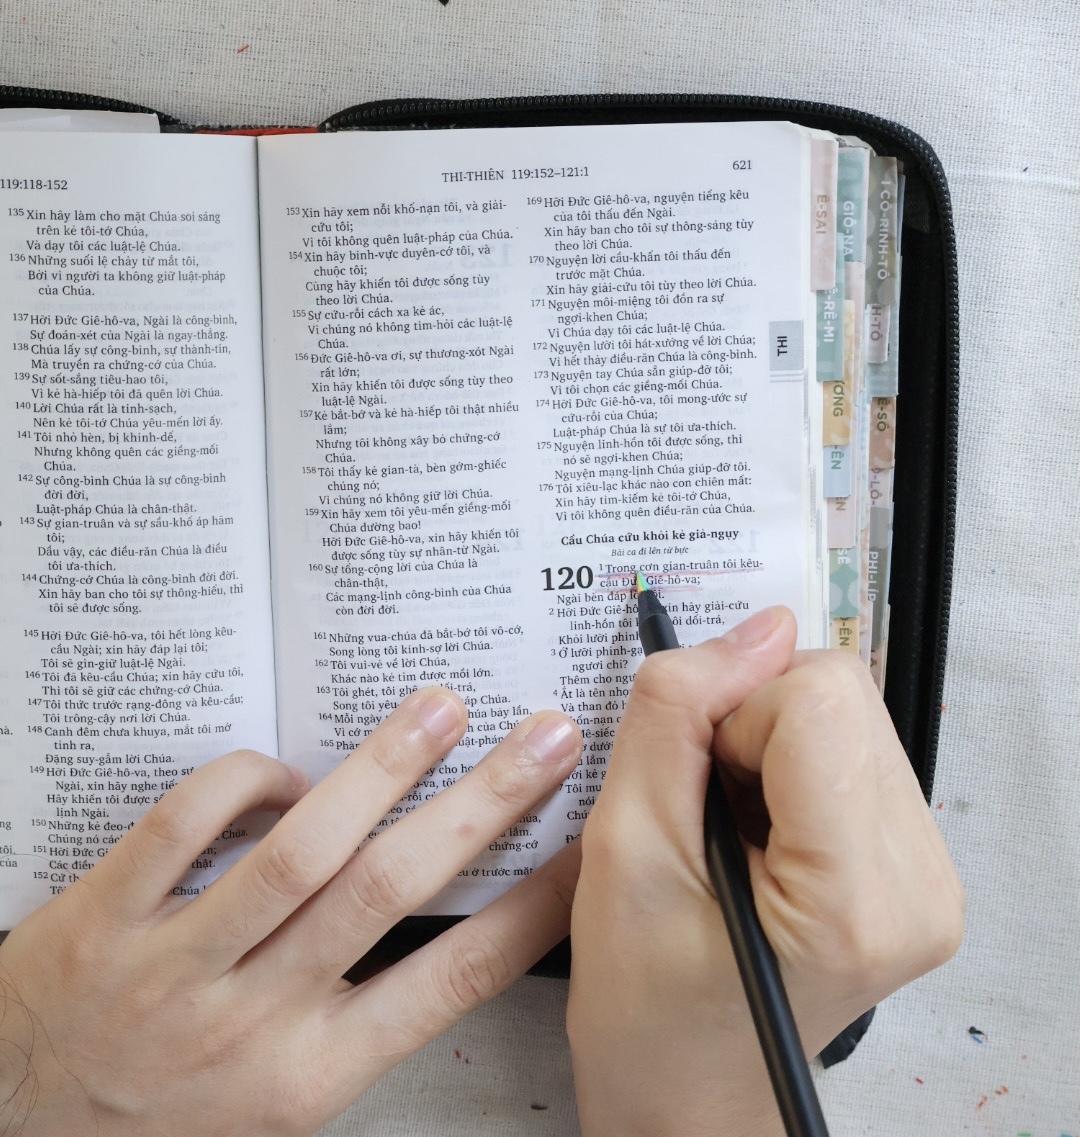 119:118-152
135 Xin hãy làm cho mặt Chúa soi sáng
trên kẻ tôi-tớ Chúa,
Và dạy tôi các luật-lệ Chúa.
136 Những suối lệ chảy từ mắt tôi,
Bởi vì người ta không giữ luật-pháp
của Chúa.
137 Hỡi Đức Giê-hô-va, Ngài là công-bình,
Sự đoán-xét của Ngài là ngay-thẳng.
138 Chúa lấy sự công-bình, sự thành-tín,
Mà truyền ra chứng-cớ của Chúa.
139 Sự sốt-sắng tiêu-hao tôi,
Vì kẻ hà-hiếp tôi đã quên lời Chúa.
140 Lời Chúa rất là tinh-sạch,
Nên kẻ tôi-tớ Chúa yêu-mến lời ấy.
141 Tôi nhỏ hèn, bị khinh-dể,
Nhưng không quên các giềng-mối
Chúa.
142 Sự công-bình Chúa là sự công-bình
đời đời,
Luật-pháp Chúa là chân-thật.
143 Sự gian-truân và sự sầu-khổ áp hãm
tôi;
Dầu vậy, các điều-răn Chúa là điều
tôi ưa-thích.
144 Chứng-cớ Chúa là công-bình đời đời.
Xin hãy ban cho tôi sự thông-hiểu, thì
tôi sẽ được sống.
145 Hỡi Đức Giê-hô-va, tôi hết lòng kêu-
cầu Ngài; xin hãy đáp lại tôi;
Tôi sẽ gìn-giữ luật-lệ Ngài.
146 Tôi đã kêu-cầu Chúa; xin hãy cứu tôi,
Thì tôi sẽ giữ các chứng-cớ Chúa.
147 Tôi thức trước rạng-đông và kêu-cầu;
Tôi trông-cậy nơi lời Chúa.
148 Canh đêm chưa khuya, mắt tôi mở
tỉnh ra,
Đặng suy-gẫm lời Chúa.
149 Hỡi Đức Giê-hô-va, theo sự
Ngài, xin hãy nghe
Hãy khiến tôi được
lịnh Ngài.
150 Những kẻ
Chúng nó
151 Hỡi Đức
Các
thật.
152
Chúa
THI-THIÊN 119:152–121:1
621
153 Xin hãy xem nỗi khổ-nạn tôi, và giải-
cứu tôi;
Vì tôi không quên luật-pháp của Chúa.
154 Xin hãy binh-vực duyên-cớ tôi, và
chuộc tôi;
Cũng hãy khiến tôi được sống tùy
theo lời Chúa.
155 Sự cứu-rỗi cách xa kẻ ác,
Vì chúng nó không tìm-hỏi các luật-lệ
Chúa.
156 Đức Giê-hô-va ơi, sự thương-xót Ngài
rất lớn;
Xin hãy khiến tôi được sống tùy theo
luật-lệ Ngài.
157 Kẻ bắt-bớ và kẻ hà-hiếp tôi thật nhiều
lắm;
Nhưng tôi không xây bỏ chứng-cớ
Chúa.
158 Tôi thấy kẻ gian-tà, bèn gớm-ghiếc
chúng nó;
Vì chúng nó không giữ lời Chúa.
159 Xin hãy xem tôi yêu-mến giềng-mối
Chúa dường bao!
Hỡi Đức Giê-hô-va, xin hãy khiến tôi
được sống tùy sự nhân-từ Ngài.
160 Sự tổng-cộng lời của Chúa là
chân-thật,
Các mạng-lịnh công-bình của Chúa
còn đời đời.
161 Những vua-chúa đã bắt-bớ tôi vô-cớ,
Song lòng tôi kính-sợ lời Chúa.
162 Tôi vui-vẻ về lời Chúa,
Khác nào kẻ tìm được mồi lớn.
163 Tôi ghét, tôi
Song tôi
Chúa.
164 Mỗi ngày
bảy lần,
Vì cớ
165
chứng-cớ
ở trước mặt
169 Hỡi Đức Giê-hô-va, nguyện tiếng kêu
của tôi thấu đến Ngài.
Xin hãy ban cho tôi sự thông-sáng tùy
theo lời Chúa.
170 Nguyện lời cầu-khẩn tôi thấu đến
trước mặt Chúa.
Xin hãy giải-cứu tôi tùy theo lời Chúa.
171 Nguyện môi-miệng tôi đồn ra sự
ngợi-khen Chúa;
Vì Chúa dạy tôi các luật-lệ Chúa.
172 Nguyện lưỡi tôi hát-xướng về lời Chúa;
Vì hết thảy điều-răn Chúa là công-bình.
173 Nguyện tay Chúa sẵn giúp-đỡ tôi;
Vì tôi chọn các giềng-mối Chúa.
174 Hỡi Đức Giê-hô-va, tôi mong-ước sự
cứu-rỗi của Chúa;
Luật-pháp Chúa là sự tôi ưa-thích.
175 Nguyện linh-hồn tôi được sống, thì
nó sẽ ngợi-khen Chúa;
Nguyện mạng-lịnh Chúa giúp-đỡ tôi.
176 Tôi xiêu-lạc khác nào con chiên mất:
Xin hãy tìm-kiếm kẻ tôi-tớ Chúa,
Vì tôi không quên điều-răn của Chúa.
Cầu Chúa cứu khỏi kẻ giả-ngụy
Bài ca đi lên từ bực
120 1 Trong cơn gian-truân tôi kêu-
cầu Đức Giê-hô-va;
Ngài bèn đáp lời tôi.
2 Hỡi Đức xin hãy giải-cứu
linh-hồn tôi môi dối-trá,
Khỏi lưỡi
3 Ớ lưỡi
ngươi chi?
Thêm cho
4 Ắt là tên
Và than đỏ
THI
Ê-SAI
GIÔ-NA
I CÔ-RINH-TÔ
PHI-LÍP